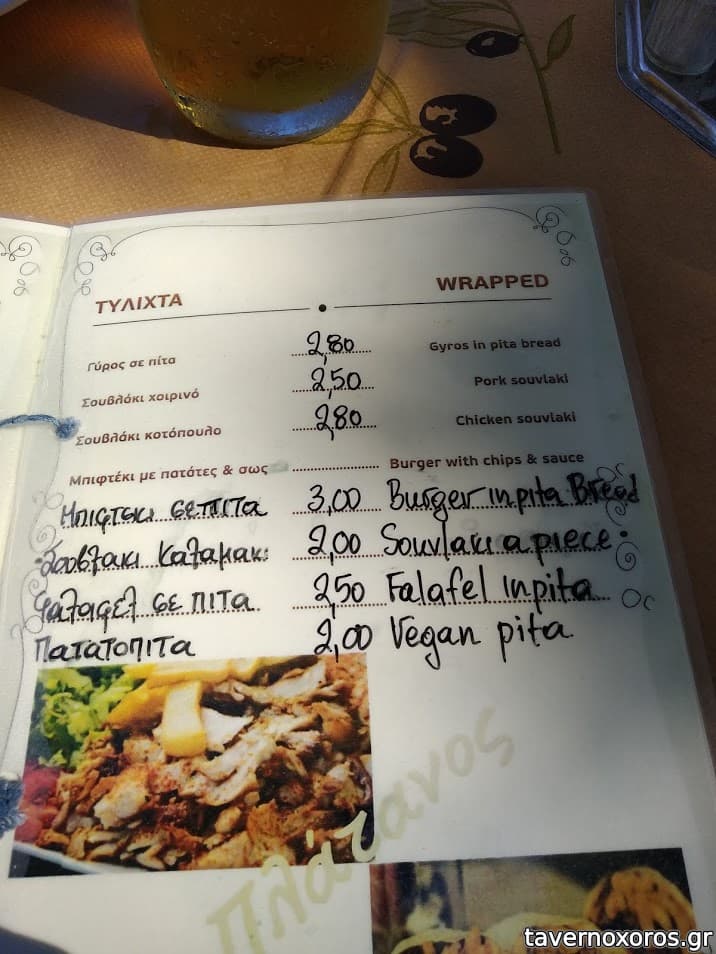 ΤΥΛΙΧΤΑ WRAPPED
Γύρος σε πίτα 2,80 Gyros in pita bread
Σουβλάκι χοιρινό 2,50 Pork souvlaki
Σουβλάκι κοτόπουλο 2,80 Chicken souvlaki
Μπιφτέκι με πατάτες & σως Burger with chips & sauce
Μπιφτεκι σε πιτα 3,00 Burger in pita Bread
Σουβλακι καλαμακι 2,00 Souvlaki a piece
Φαλαφελ σε πιτα 2,50 Falafel in pita
Πατατοπιτα 2,00 Vegan pita
Πλάτανος
tavernoxoros.gr